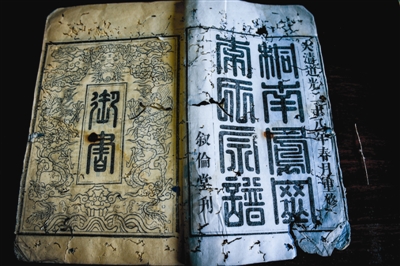 大清道光二十八年春月重修
桐南鳳岡
氏宗譜
叙倫堂刊
御書